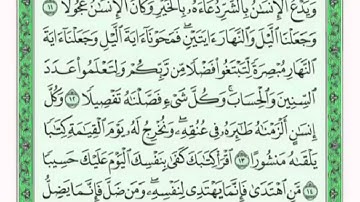 وَيَدْعُ الْإِنسَٰنُ بِالشَّرِّ دُعَآءَهُۥ بِالْخَيْرِ وَكَانَ الْإِنسَٰنُ عَجُولًا ١١
وَجَعَلْنَا الَّيْلَ وَالنَّهَارَ ءَايَتَيْنِ فَمَحَوْنَآ ءَايَةَ الَّيْلِ وَجَعَلْنَآ ءَايَةَ
النَّهَارِ مُبْصِرَةً لِّتَبْتَغُوا۟ فَضْلًا مِّن رَّبِّكُمْ وَلِتَعْلَمُوا۟ عَدَدَ
السِّنِينَ وَالْحِسَابَ وَكُلَّ شَىْءٍ فَصَّلْنَٰهُ تَفْصِيلًا ١٢ وَكُلَّ
إِنسَٰنٍ أَلْزَمْنَٰهُ طَٰٓئِرَهُۥ فِى عُنُقِهِۦ وَنُخْرِجُ لَهُۥ يَوْمَ الْقِيَٰمَةِ كِتَٰبًا
يَلْقَىٰهُ مَنشُورًا ١٣ اقْرَأْ كِتَٰبَكَ كَفَىٰ بِنَفْسِكَ الْيَوْمَ عَلَيْكَ حَسِيبًا
١٤ مَّنِ اهْتَدَىٰ فَإِنَّمَا يَهْتَدِى لِنَفْسِهِۦ وَمَن ضَلَّ فَإِنَّمَا يَضِلُّ